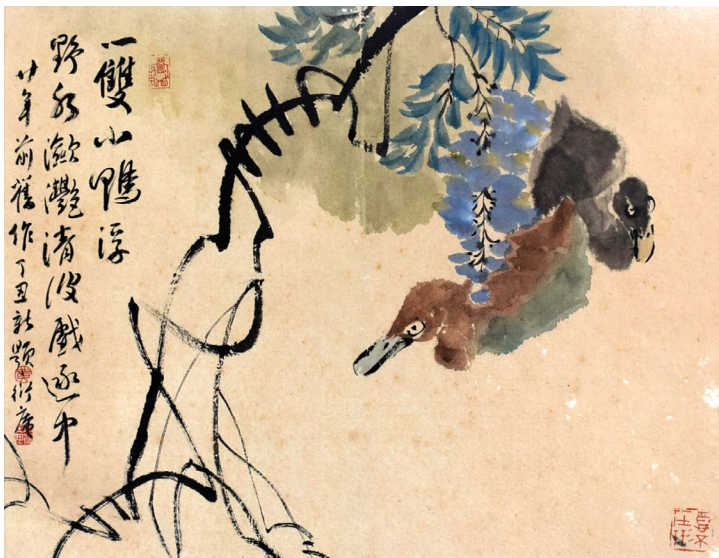 一雙小鴨浮
野水瀲灩清波戲逐中
廿年前舊作丁丑新題衍庸